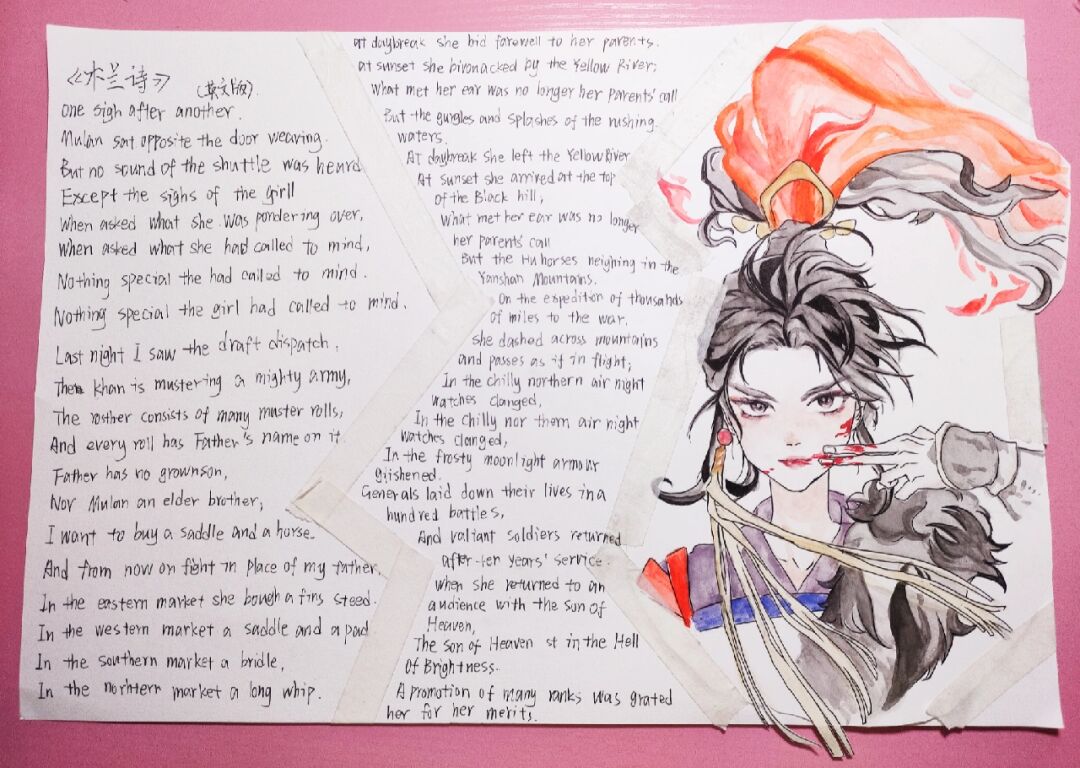 《木兰诗》
(英文版).
One sigh after another.
Mulan sat opposite the door weaving.
But no sound of the shuttle was heard
Except the sighs of the girll
When asked what she was pondering over,
When asked what she had called to mind,
Nothing special the had called to mind.
Nothing special the girl had called to mind.
Last night I saw the draft dispatch.
The khan is mustering a mighty army,
The rosther consists of many muster rolls,
And every roll has Father's name on it.
Father has no grownson,
Nor Mulan an elder brother;
I want to buy a saddle and a horse.
And from now on fight in place of my father,
In the eastern market she bough a fins steed.
In the western market a saddle and a pad
In the southern market a bridle,
In the norhtern market a long whip.
at daybreak she bid farewell to her parents.
at sunset she bivonacked by the Yellow River;
What met her ear was no longer her parents' call
But the gurgles and splashes of the rushing
waters.
At daybreak she left the Yellow River
At sunset she arrired at the top
of the Black hill;
What met her ear was no longer
her parents' call
But the Hu horses neighing in the
Yanshan Mountains.
On the expedition of thousands
of miles to the war.
she dashed across mountains
and passes as if in flight;
In the chilly northern air night
watches clanged,
In the chilly nor thern air night
watches clanged,
In the frosty moonlight armour
glishened.
Generals laid down their lives in a
hundred battles,
And valiant soldiers returned
after ten years' service.
when she returned to an
audience with the Son of
Heaven,
The son of Heaven st in the Hell
Of Brightness.
A promotion of many ranks was grated
her for her merits.